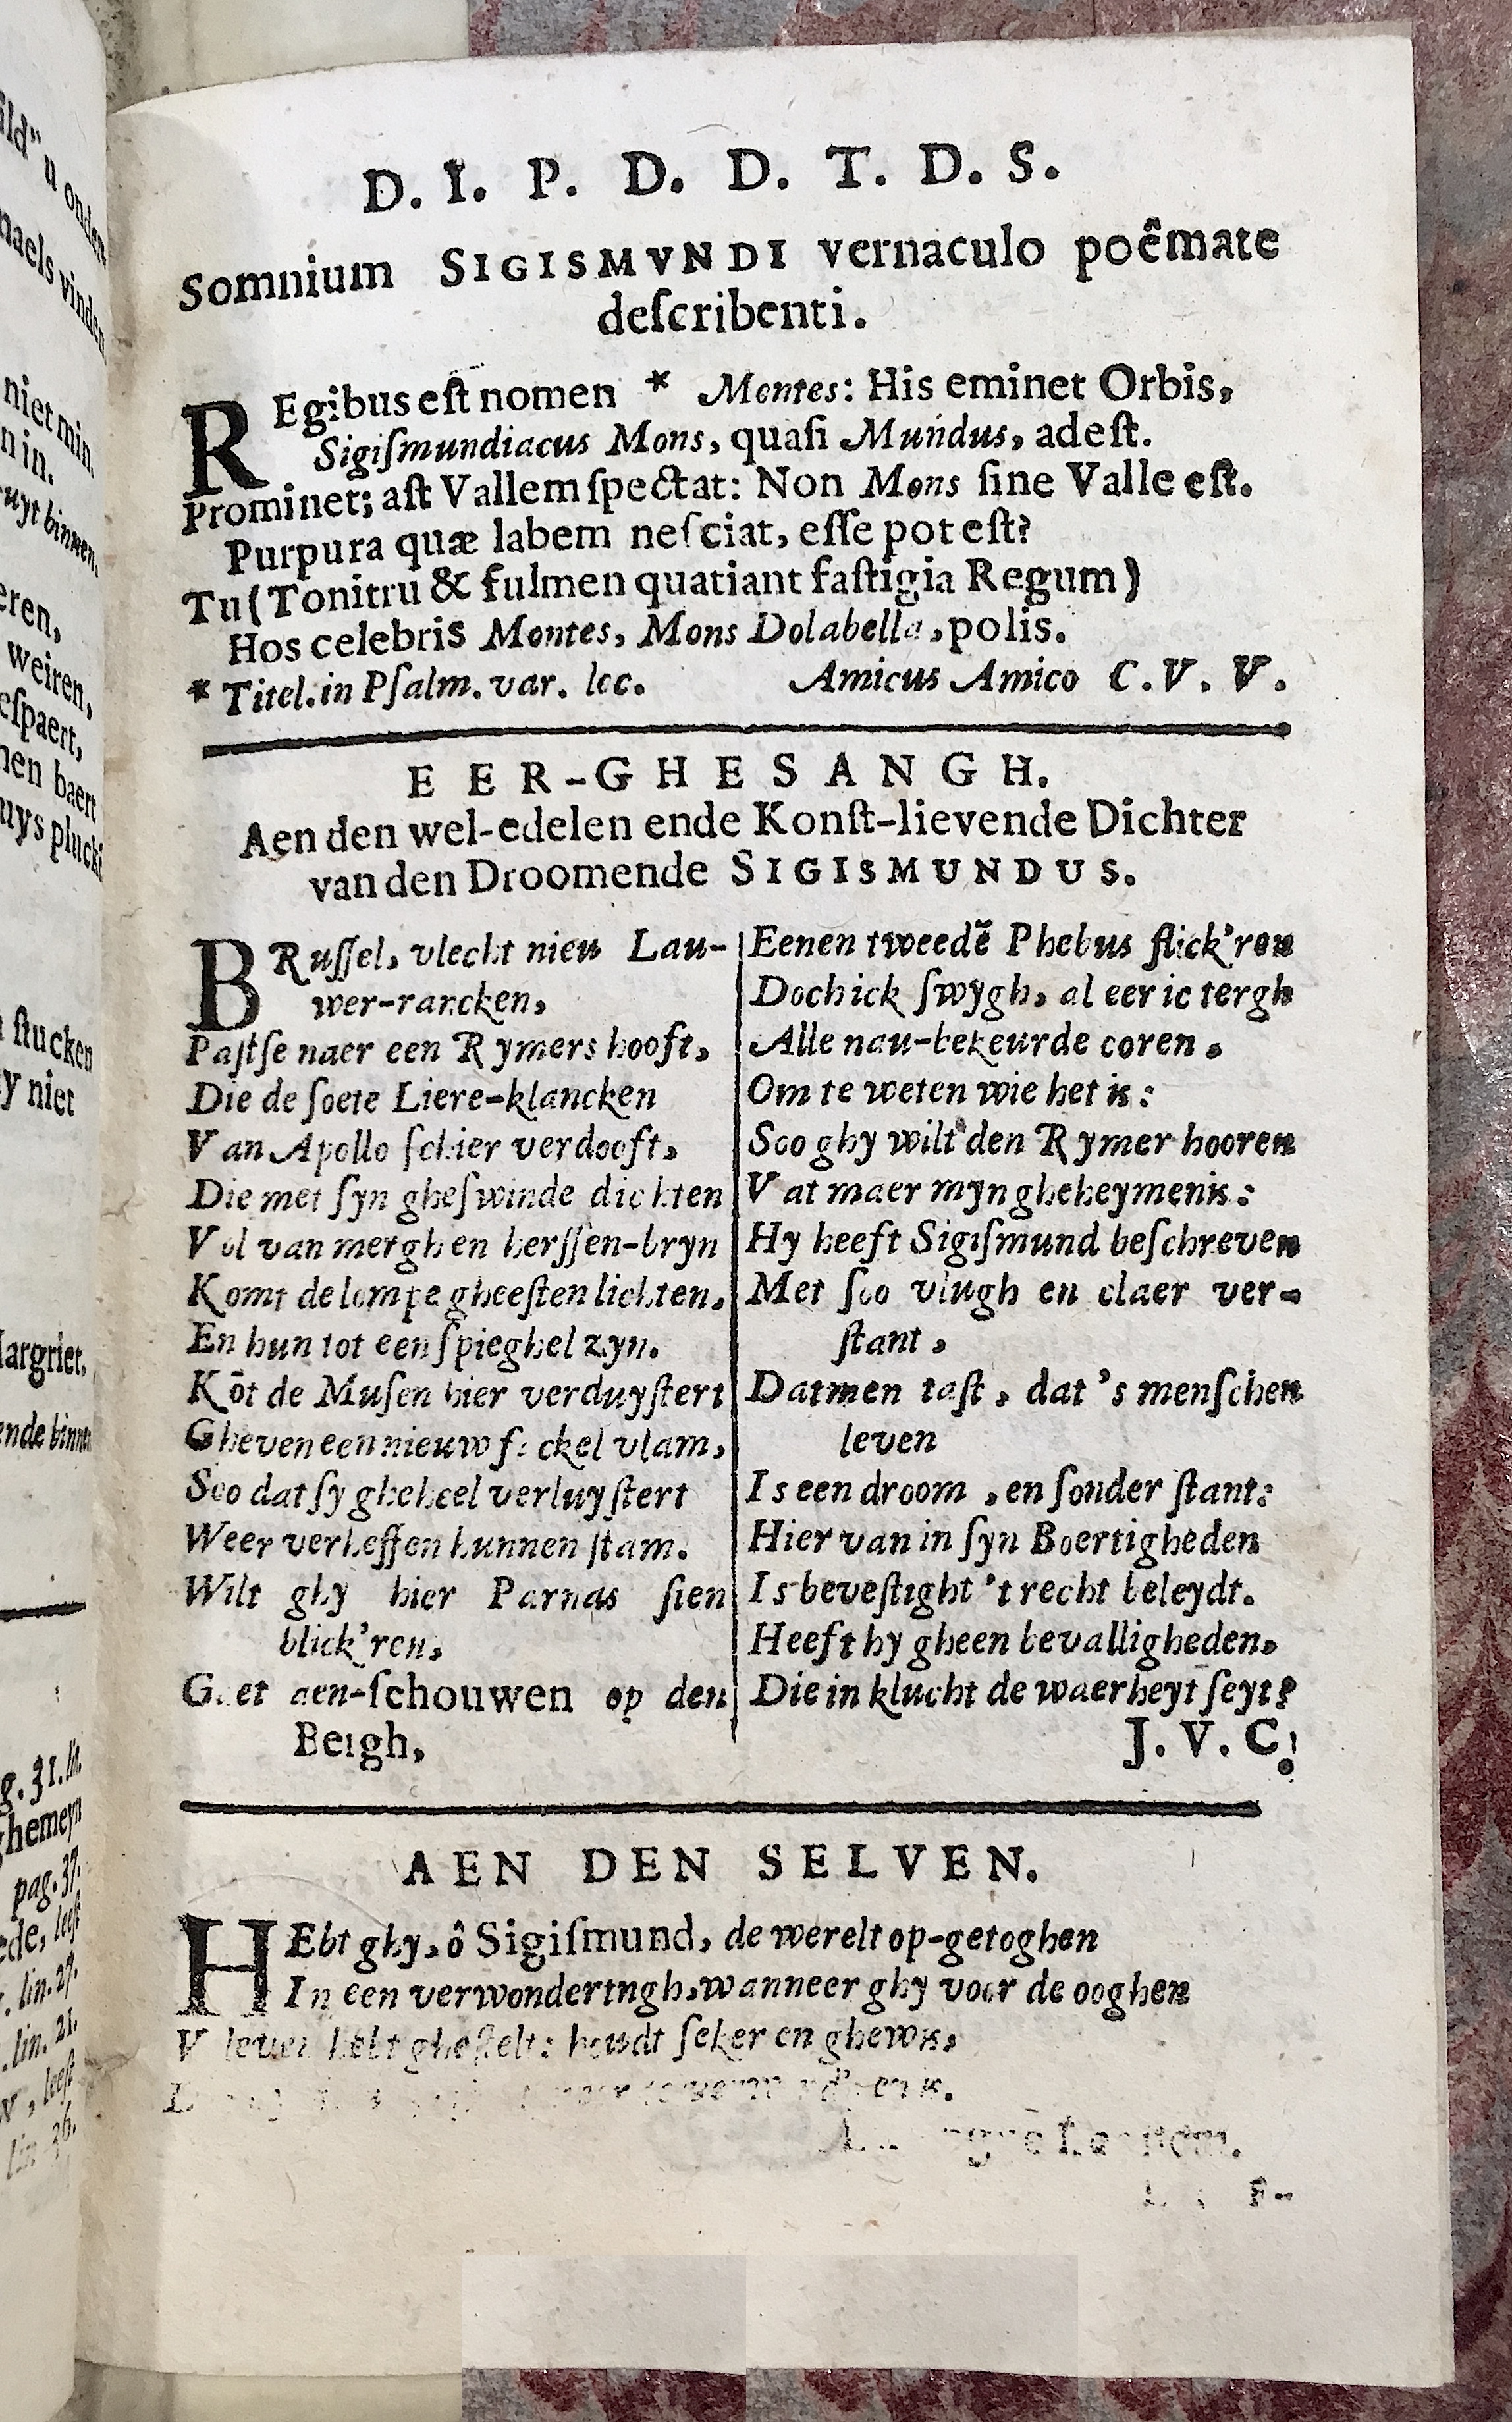 D. I. P. D. D. T. D. S.
Somnium SIGISMVNDI vernaculo poêmate
deſcribenti.
REgibus eſt nomen * Montes: His eminet Orbis,
Sigiſmundiacus Mons, quaſi Mundus, adeſt.
Prominet; aſt Vallem ſpectat: Non Mons ſine Valle eſt.
Purpura quæ labem neſciat, eſſe poteſt?
Tu (Tonitru & fulmen quatiant faſtigia Regum)
Hos celebris Montes, Mons Dolabella, polis.
* Titel. in Pſalm. var. lec. Amicus Amico C. V. V.
EER-GHESANGH.
Aen den wel-edelen ende Konſt-lievende Dichter
van den Droomende SIGISMUNDUS.
BRuſſel, vlecht nieu Lau-
wer-rancken,
Paſtſe naer een Rymers hooft,
Die de ſoete Liere-klancken
Van Apollo ſchier verdooft,
Die met ſyn gheſwinde dichten
Vol van mergh en herſſen-bryn
Komt de lompe gheeſten lichten,
En hun tot een ſpieghel zyn.
Kōt de Muſen hier verduyſtert
Gheven een nieuw fackel vlam,
Soo dat ſy gheheel verluyſtert
Weer verheffen hunnen ſtam.
Wilt ghy hier Parnas ſien
blick'ren,
Gaet aen-ſchouwen op den
Bergh,
Eenen tweedē Phebus flick'ren
Doch ick ſwygh, al eer ic tergh
Alle nau-bekeurde ooren,
Om te weten wie het is:
Soo ghy wilt den Rymer hooren
Vat maer myn gheheymenis:
Hy heeft Sigiſmund beſchreven
Met ſoo vlugh en claer ver-
ſtant,
Datmen taſt, dat's menſchen
leven
Is een droom, en ſonder ſtant:
Hier van in ſyn Boertigheden
Is beveſtight 't recht beleydt.
Heeft hy gheen bevalligheden,
Die in klucht de waerheyt ſeyt?
J. V. C.
AEN DEN SELVEN.
HEbt ghy, ô Sigiſmund, de werelt op-getoghen
In een verwonderingh, wanneer ghy voor de ooghen
V leven hebt gheſtelt: houdt ſeker en ghewis,